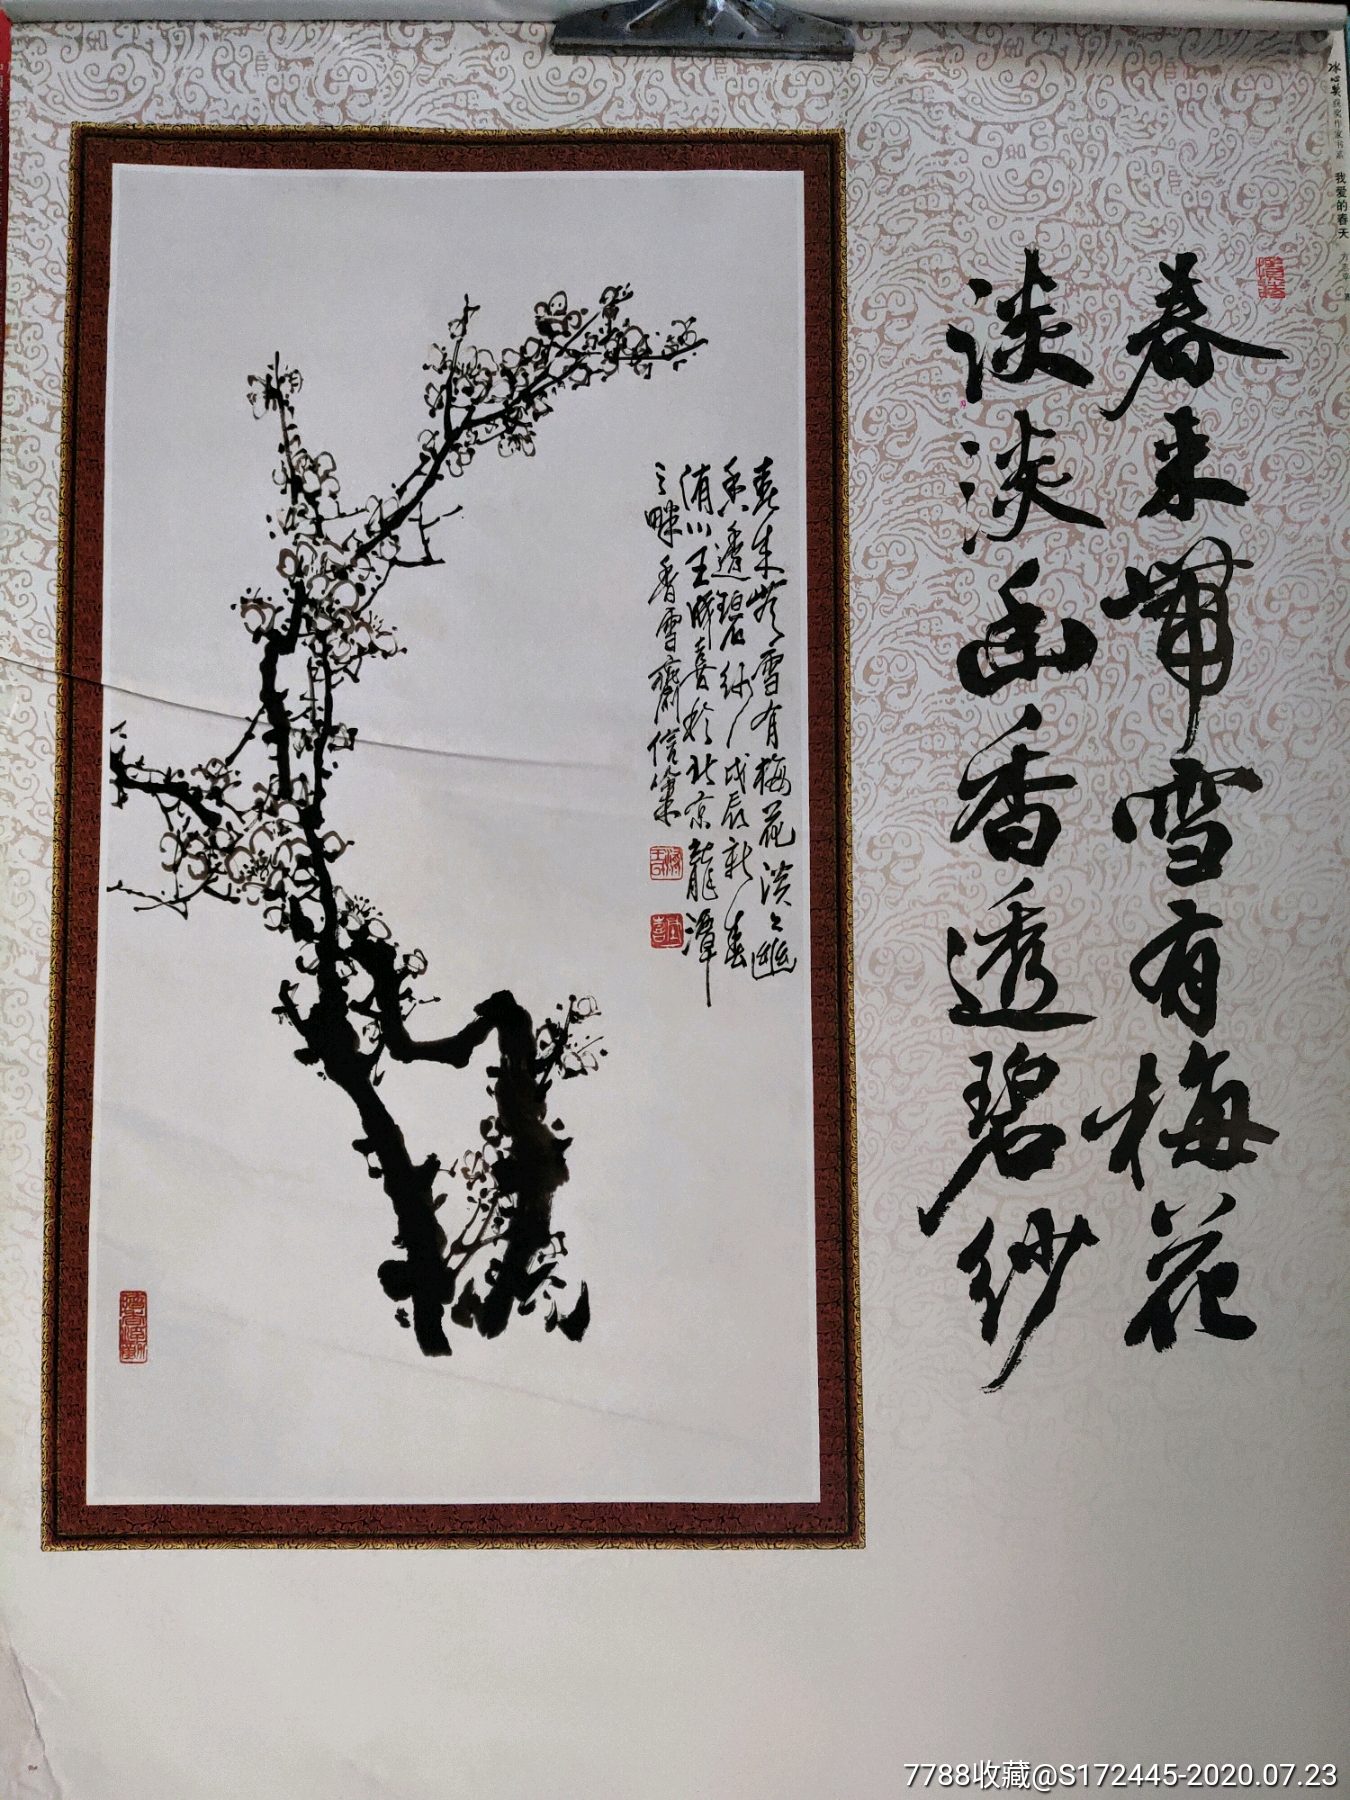 春来带雪有梅花
淡淡幽香透碧纱
春来带雪有梅花淡淡幽
香透碧纱戊辰新春
洧川王成喜於北京龍潭
之畔香雪齋信筆
我爱的春天
7788收藏@S172445-2020.07.23